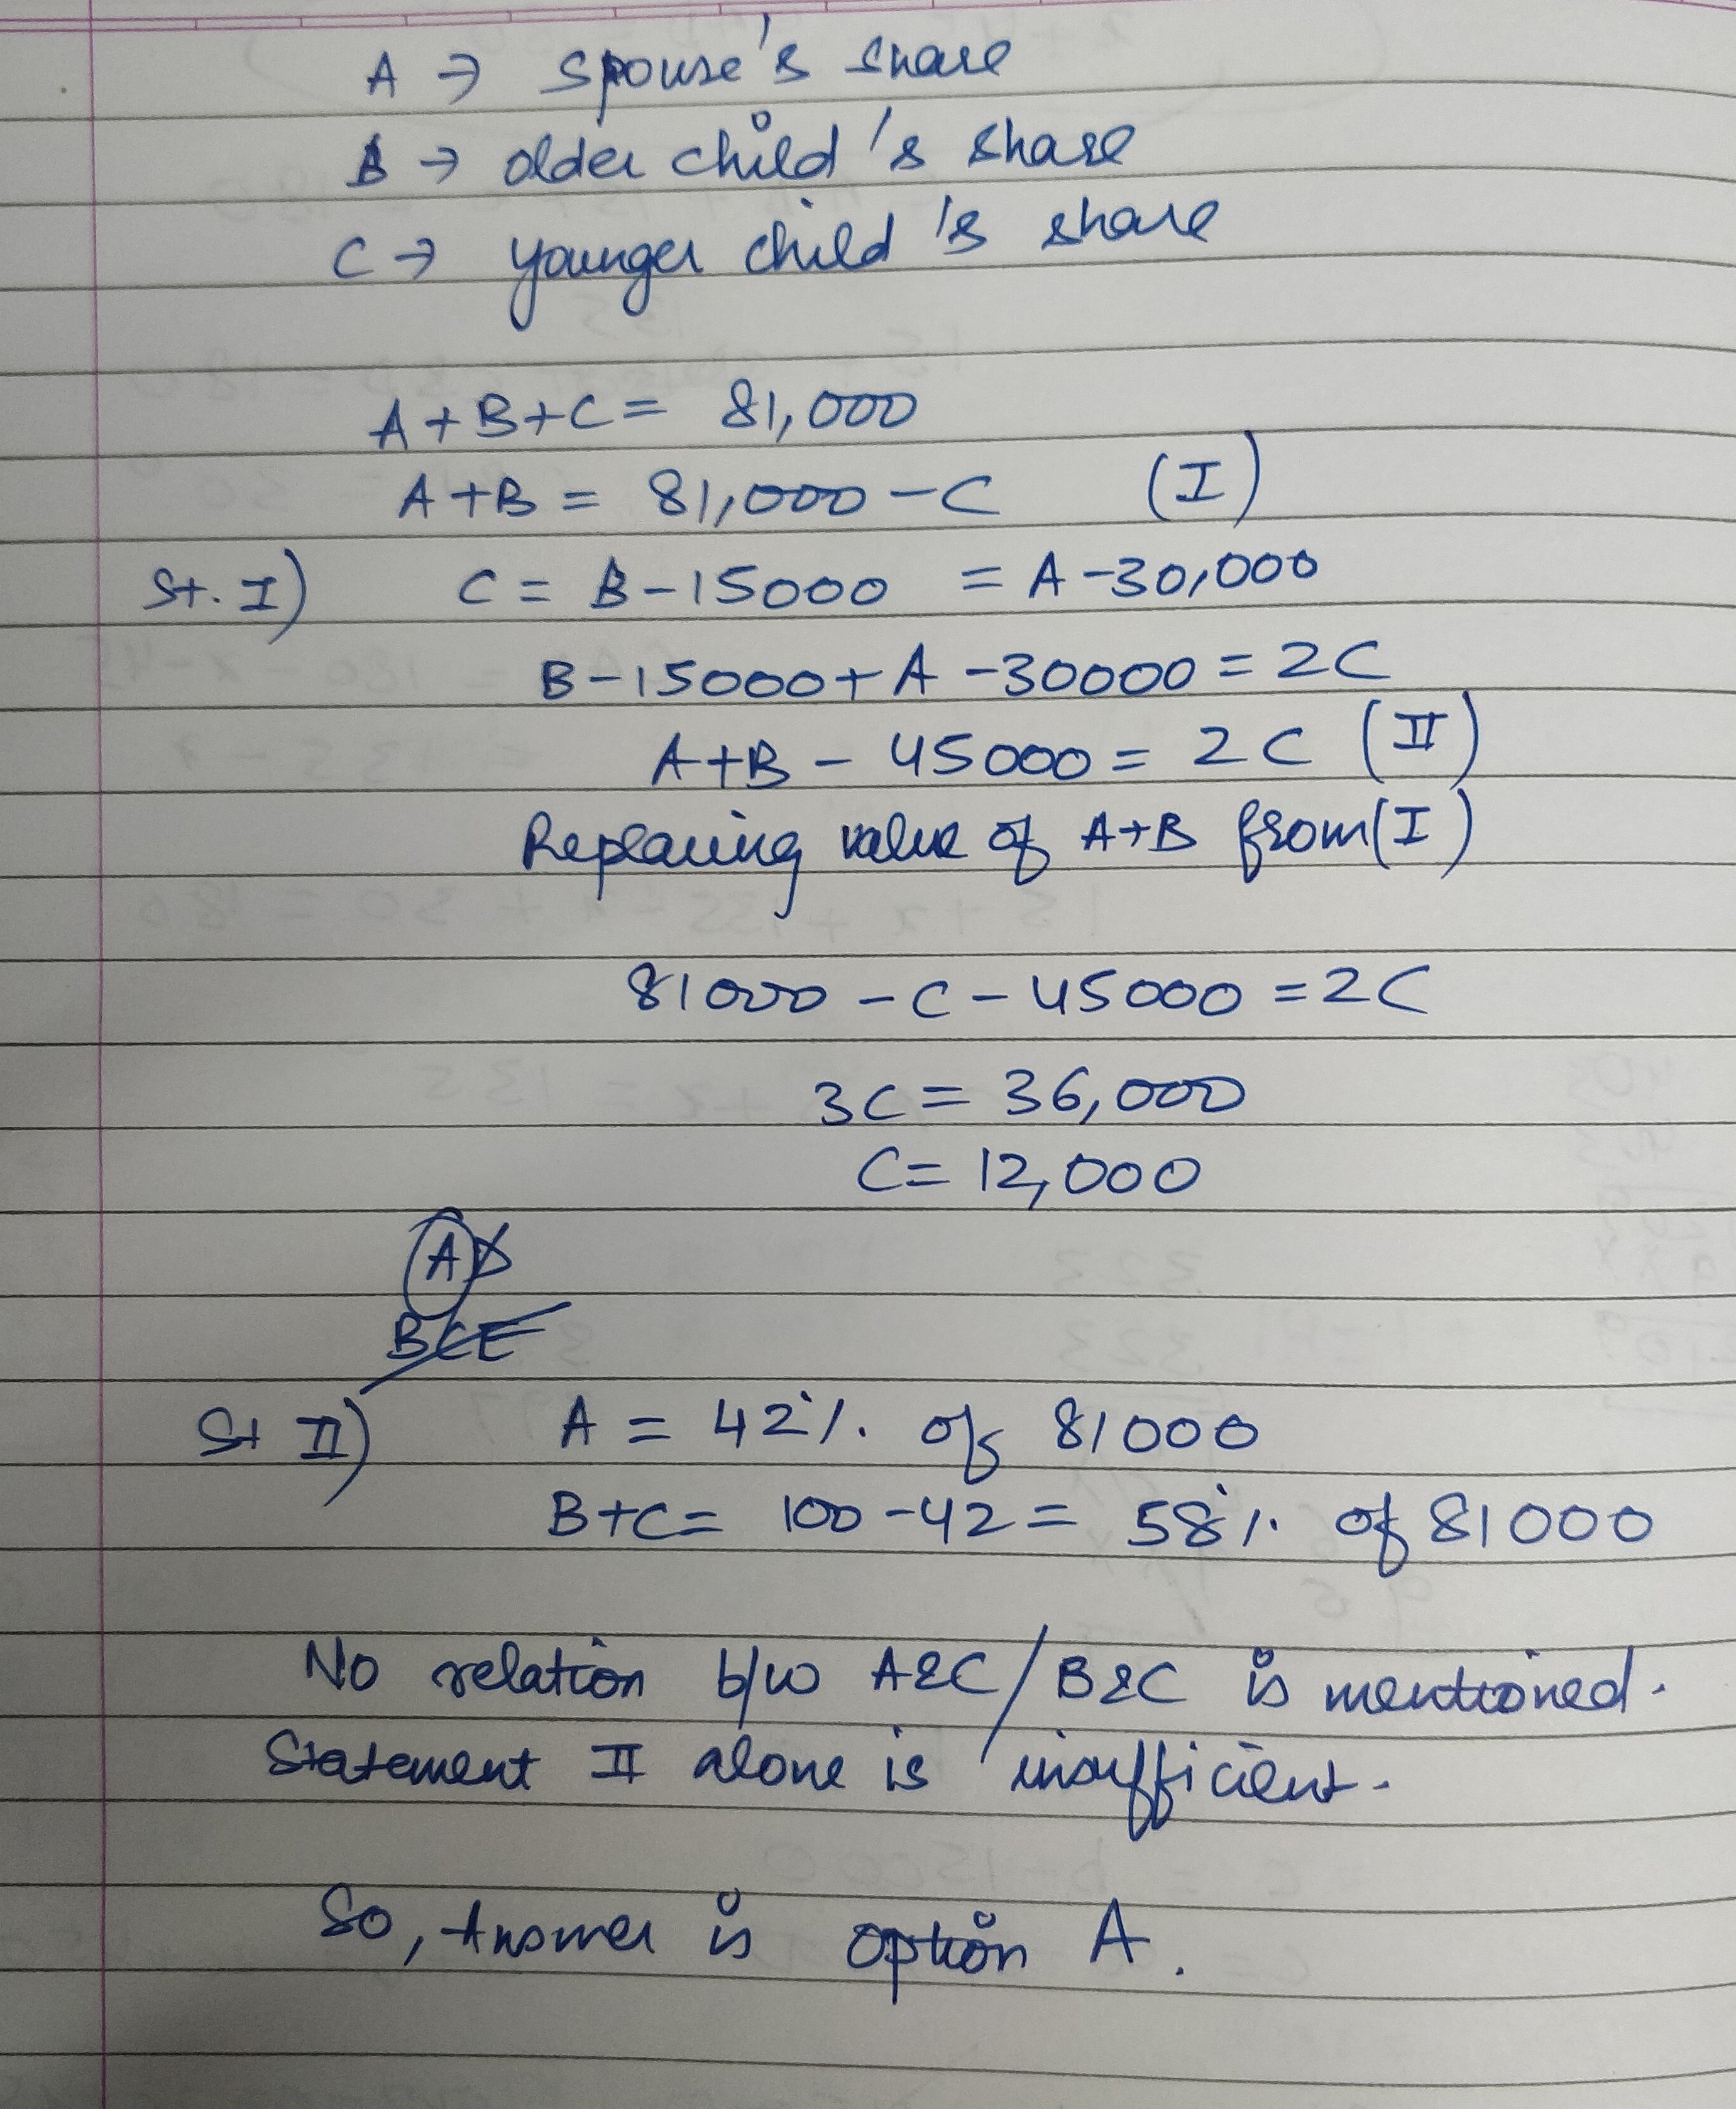 A → Spouse's share
B → older child's share
C → younger child's share
A+B+C = 81,000
A+B = 81,000 - C (I)
St. I) C = B-15000 = A-30,000
B-15000+A-30000 = 2C
A+B - 45000 = 2C (II)
Replacing value of A+B from (I)
81000 - C - 45000 = 2C
3C = 36,000
C = 12,000
AD
BCE
St II) A = 42% of 81000
B+C = 100-42 = 58% of 81000
No relation b/w A&C/B&C is mentioned.
Statement II alone is insufficient.
So, Answer is option A.